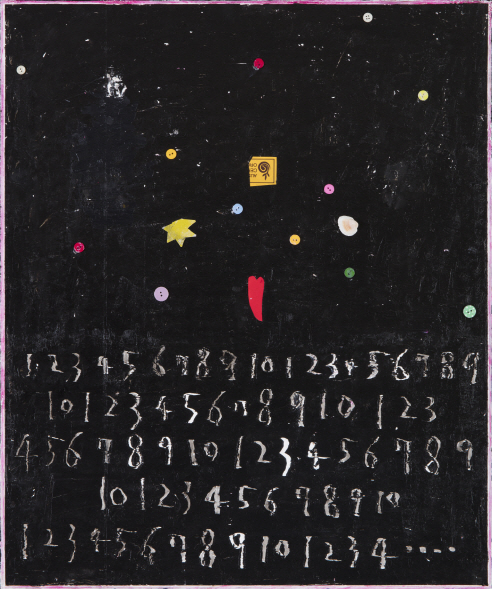 1 2 3 4 5 6 7 8 9 10 1 2 3 4 5 6 7 8 9
10 1 2 3 4 5 6 7 8 9 10 1 2 3
4 5 6 7 8 9 10 1 2 3 4 5 6 7 8 9
10 1 2 3 4 5 6 7 8 9 10
1 2 3 4 5 6 7 8 9 10 1 2 3 4 ....